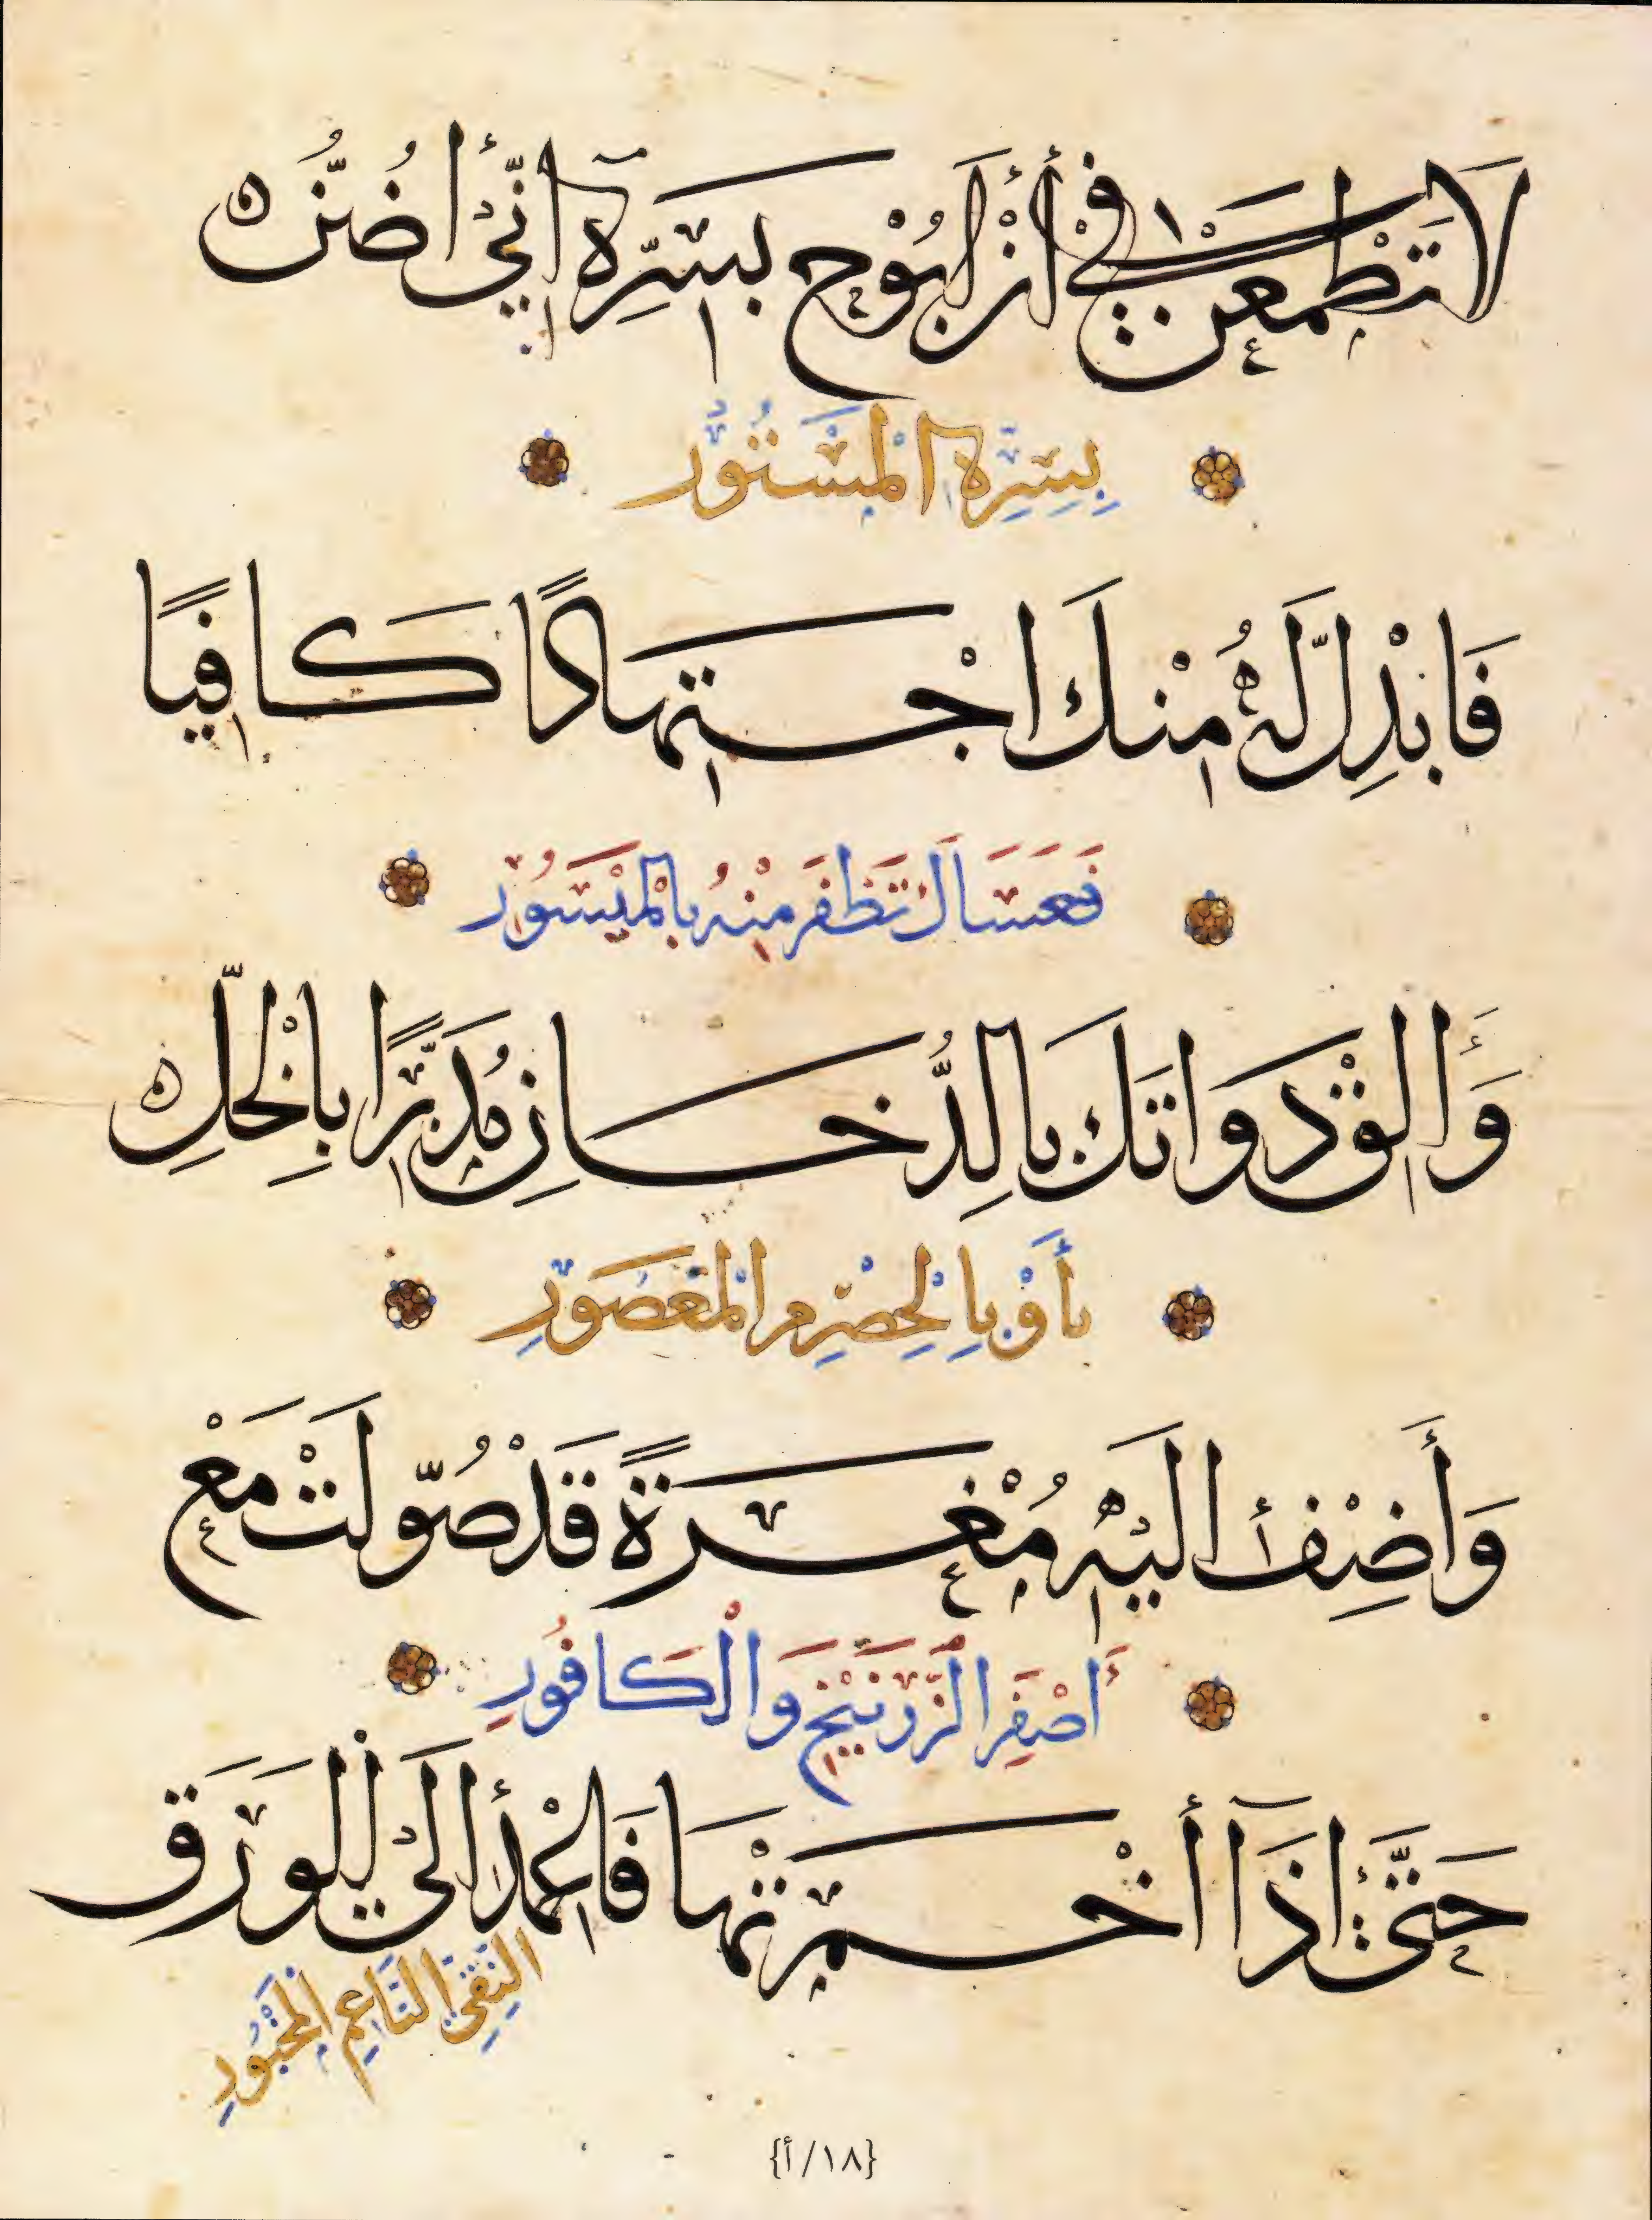 لَا تَطْمَعَنْ فِي أَنْ أَبُوْحَ بِسِرِّهِ إِنِّي أَضُنُّ
بِسِرِّهِ الْمَسْتُوْرِ
فَابْذِلْ لَهُ مِنْكَ اجْتِهَادًا كَافِيًا
فَعَسَاكَ تَظْفَرْ مِنْهُ بِالْمَيْسَوُرِ
وَأَلِقْ دَوَاتَكَ بِالدُّخَانِ مُدَبَّرًا بِالْخَلِّ
أَوْ بِالْحِصْرِمِ الْمَعْصُوْرِ
وَأَضِفْ إِلَيْهِ مُغْرَةً قَدْ صُوِّلَتْ مَعْ
أَصْفَرِ الزَّرْنِيْخِ وَالْكَافُورِ
حَتَّى إِذَا أَخْمَرْتَهَا فَاعْمِدْ إِلَى الْوَرَقِ
النَّقِيِّ النَّاعِمِ الْمَخْبُوْرِ
{١٨/أ}